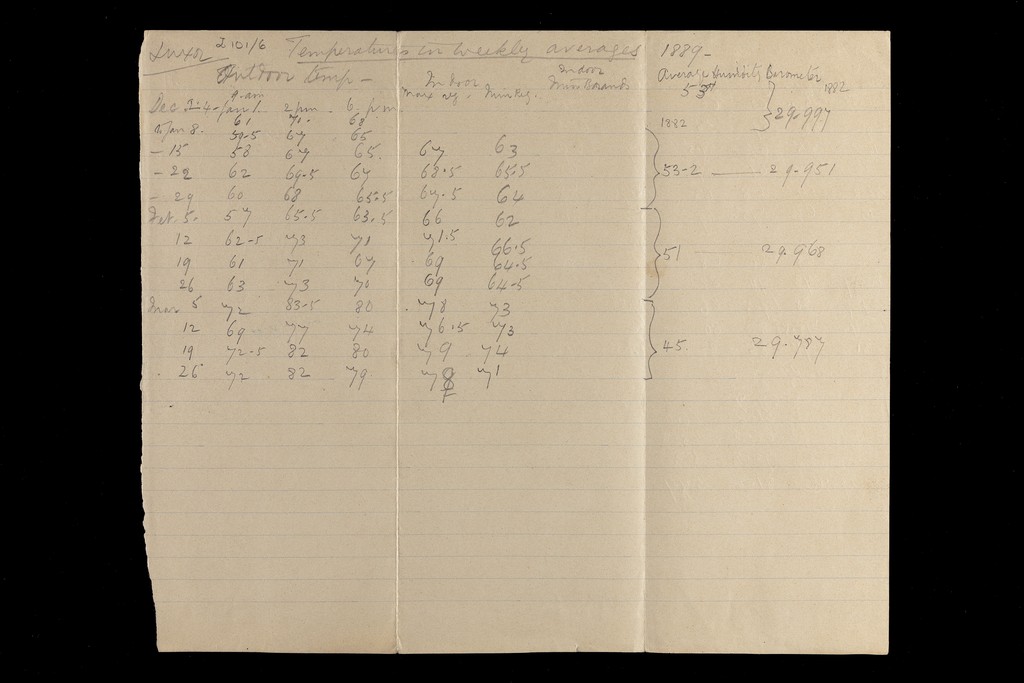 Luxor J 101/6 Temperatures in weekly averages 1889-
Outdoor temp - Indoor Indoor Average Humidity Barometer
9. am max reg. Min Reg. Miss Borands 53 1882
Dec 24 - Jan 1. 2 pm 6. p.m 29.997
61 71. 68 1882
to Jan 8. 59.5 67 65
- 15 58 67 65. 67 63
- 22 62 69.5 67 68.5 65.5 53-2 — 29.951
- 29 60 68 65.5 67.5 64
Feb. 5. 57 65.5 63.5 66 62
12 62-5 73 71 71.5 66.5
19 61 71 67 69 64.5 51 — 29.968
26 63 73 70 69 64-5
Mar 5 72 83-5 80 78 73
12 69 77 74 76.5 73
19 72-5 82 80 79 74 45. 29.787
26 72 82 79 78 71